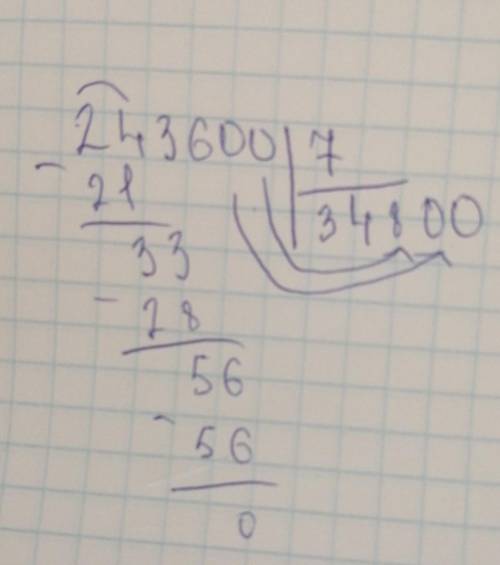 243600 7
- 21 34800
33
- 28
56
- 56
0